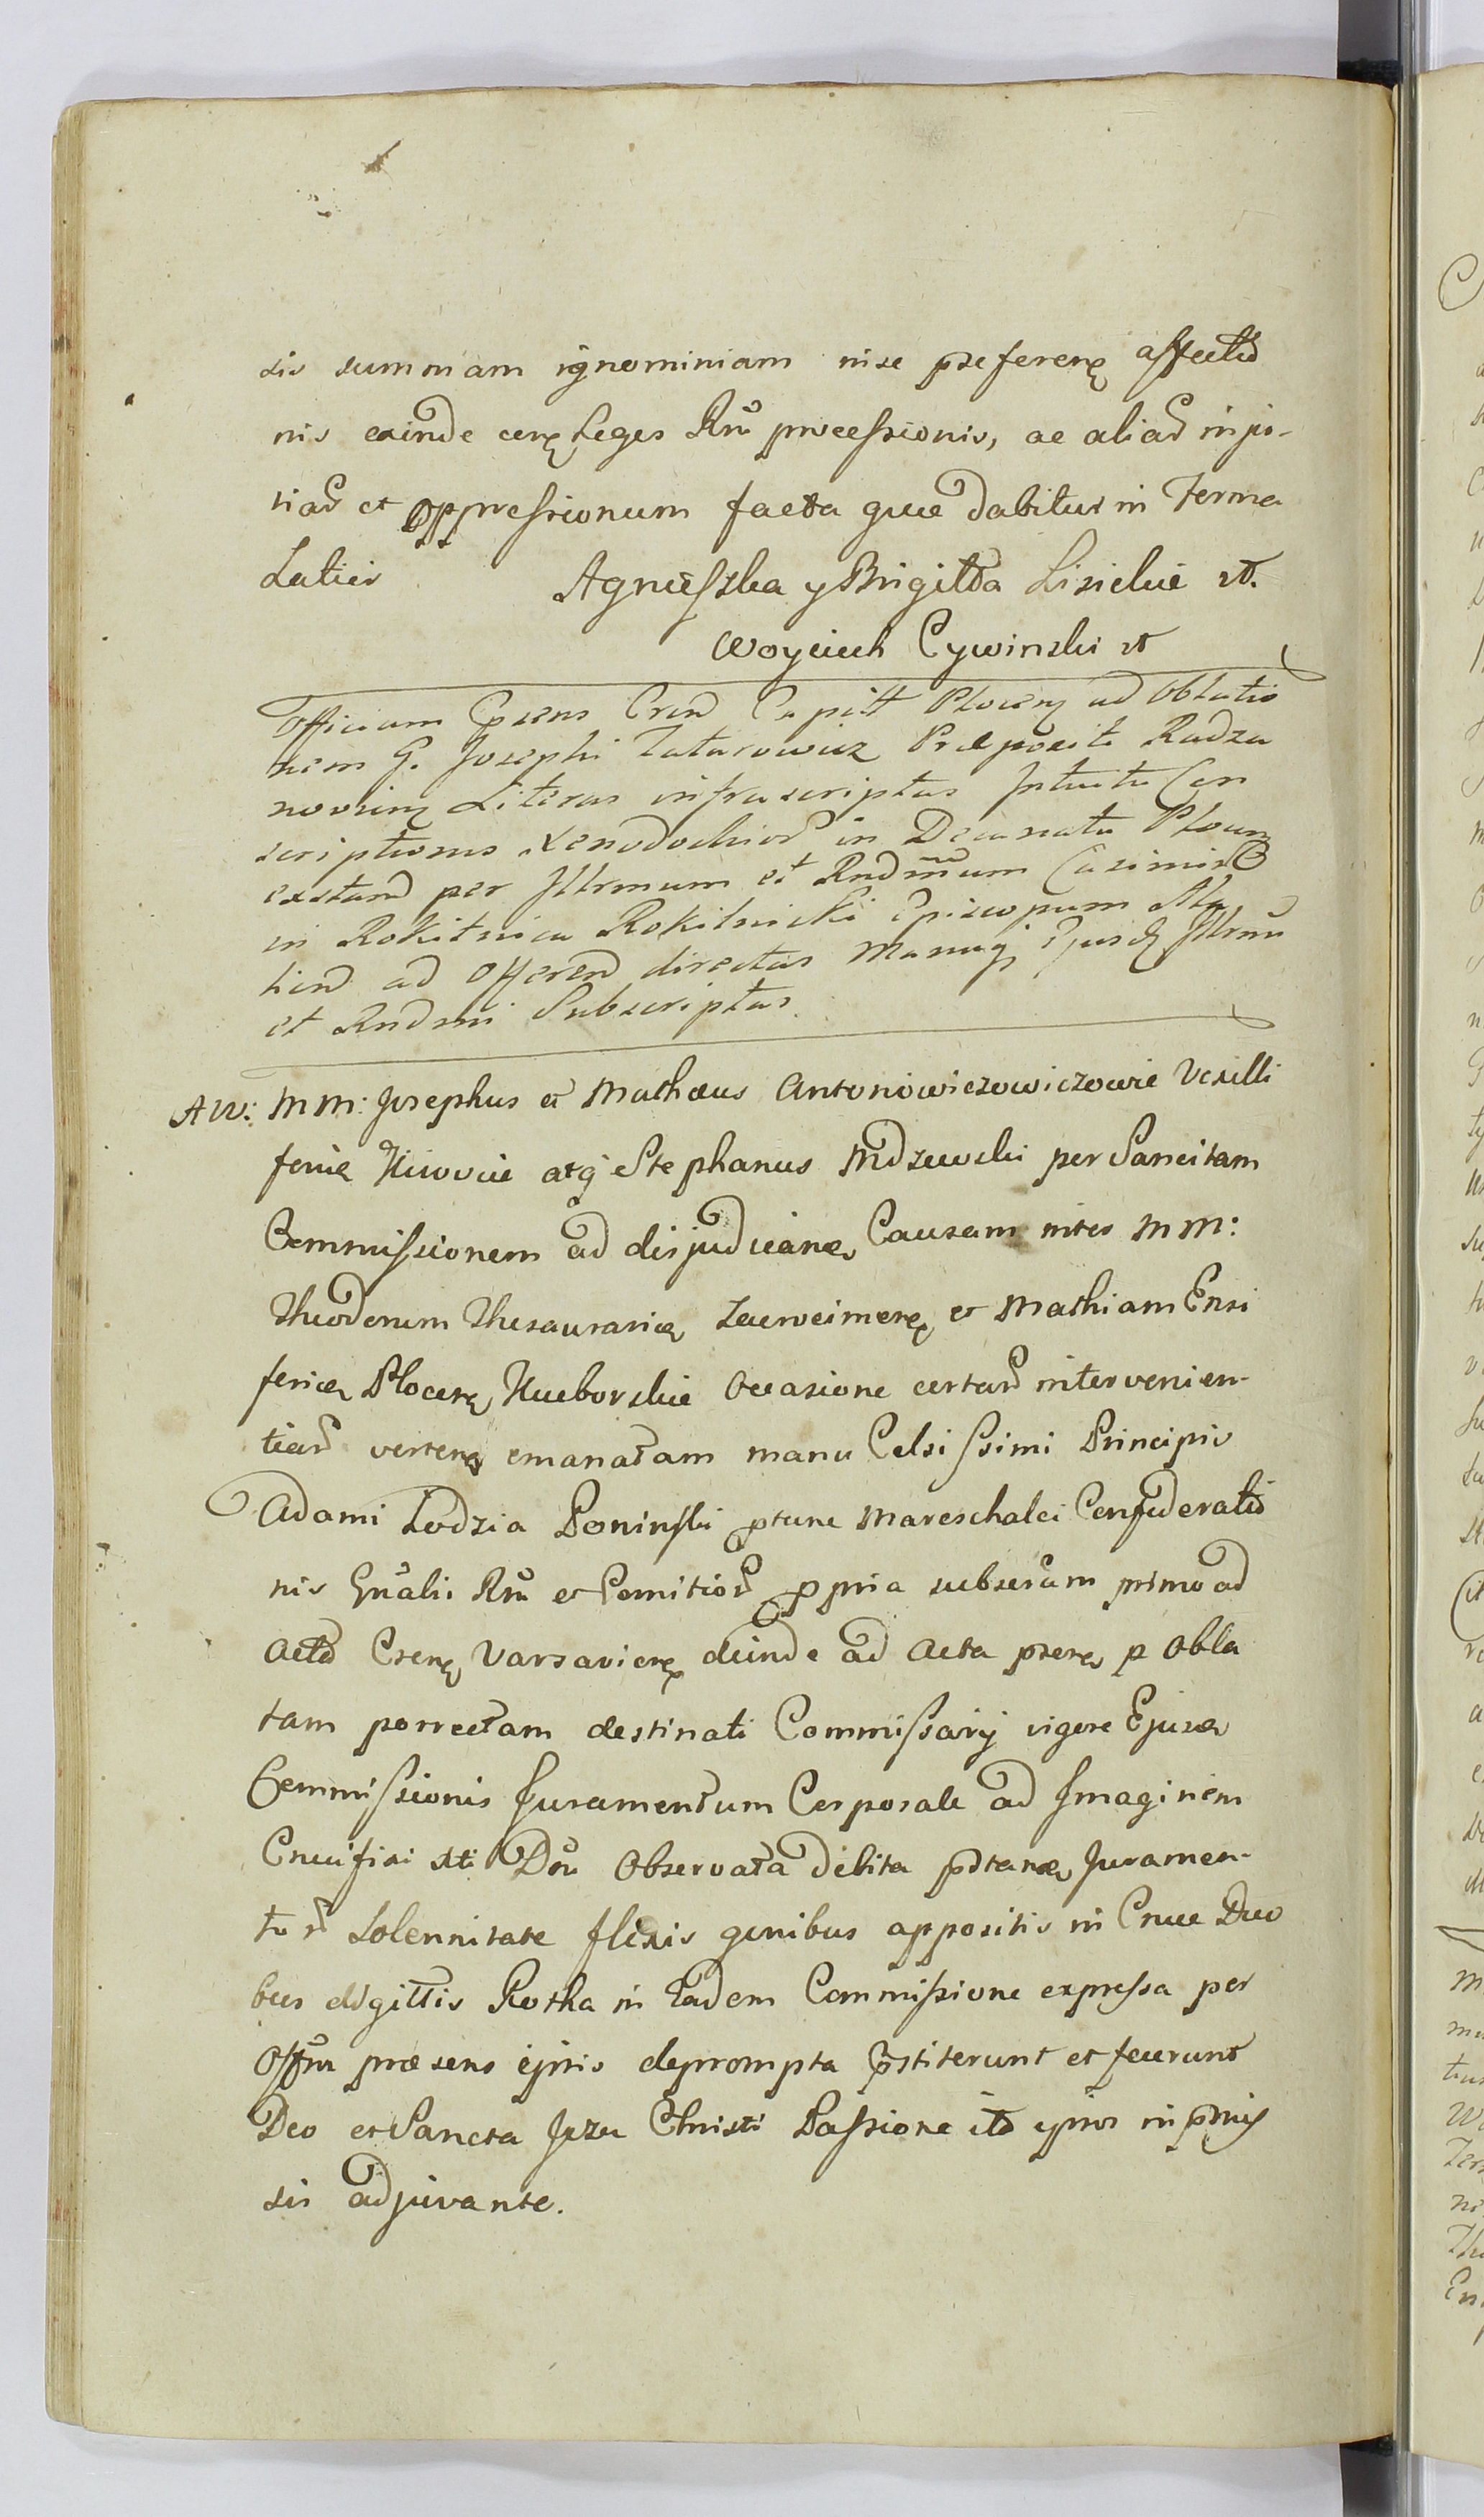 sis summam ignominiam nise pseferenę affectio
nis exinde cerę Leges Rnu processionis, ac aliar injo-
tiar et Oppressionum facta quæ dabitur in Terma
Latius Agnieszka y Brigitta Lisickie etc.
Woyciech Cywinski etc
Officium psens Cren Capitt Plocenę ad Oblatio
nem G. Josephi Tatarowicz Præpositi Radza
noviens Literas infrascriptas Intuitu Con
scriptionis Xenodochior in Decanatu Plocenę
existend per Illrmum et Rndmum Casimir
in Rokitnica Rokitnicki Episcopum Ma
tien ad Offerend directas Manuq Ejusd Illrmi
et Rndmi Subscriptas.
AW: MM: Josephus et Mathæus Antoniowiczowiczowie Vexilli
feriæ Kijoviæ atq Stephanus Mdzewski per Sancitam
Commissionem ad disjudicanæ Causam inter MM:
Theodorum Thesaurariæ et Mathiam Ensi
feriæ Plocenę Kueborskie Occasione certar intervenien-
tiar vertenę emanatam manu Celsissimi Principis
Adami Lodzia Poninski ptunc Mareschalci Confœderatio
nis Gnalis Rnu et Comitior ppria subscram primo ad
Acta Csenę Varsavienę deinde ad Acta psens p Obla
tam porrectam destinati Commissarij vigore Ejusdę
Commissionis Juramentum Corporale ad Imaginem
Crucifixi Xti Dni Observata debita pstanę Juramen-
tor Solennitate flexis genibus appositis in Cruce Duo
bus digittis Rotha in Eadem Commissione expressa per
Offm præsens ejnis deprompta pstiterunt et fecerunt
Deo et Sancta Jezu Christi Passione ita ipsos in pmis
sis adjuvante.